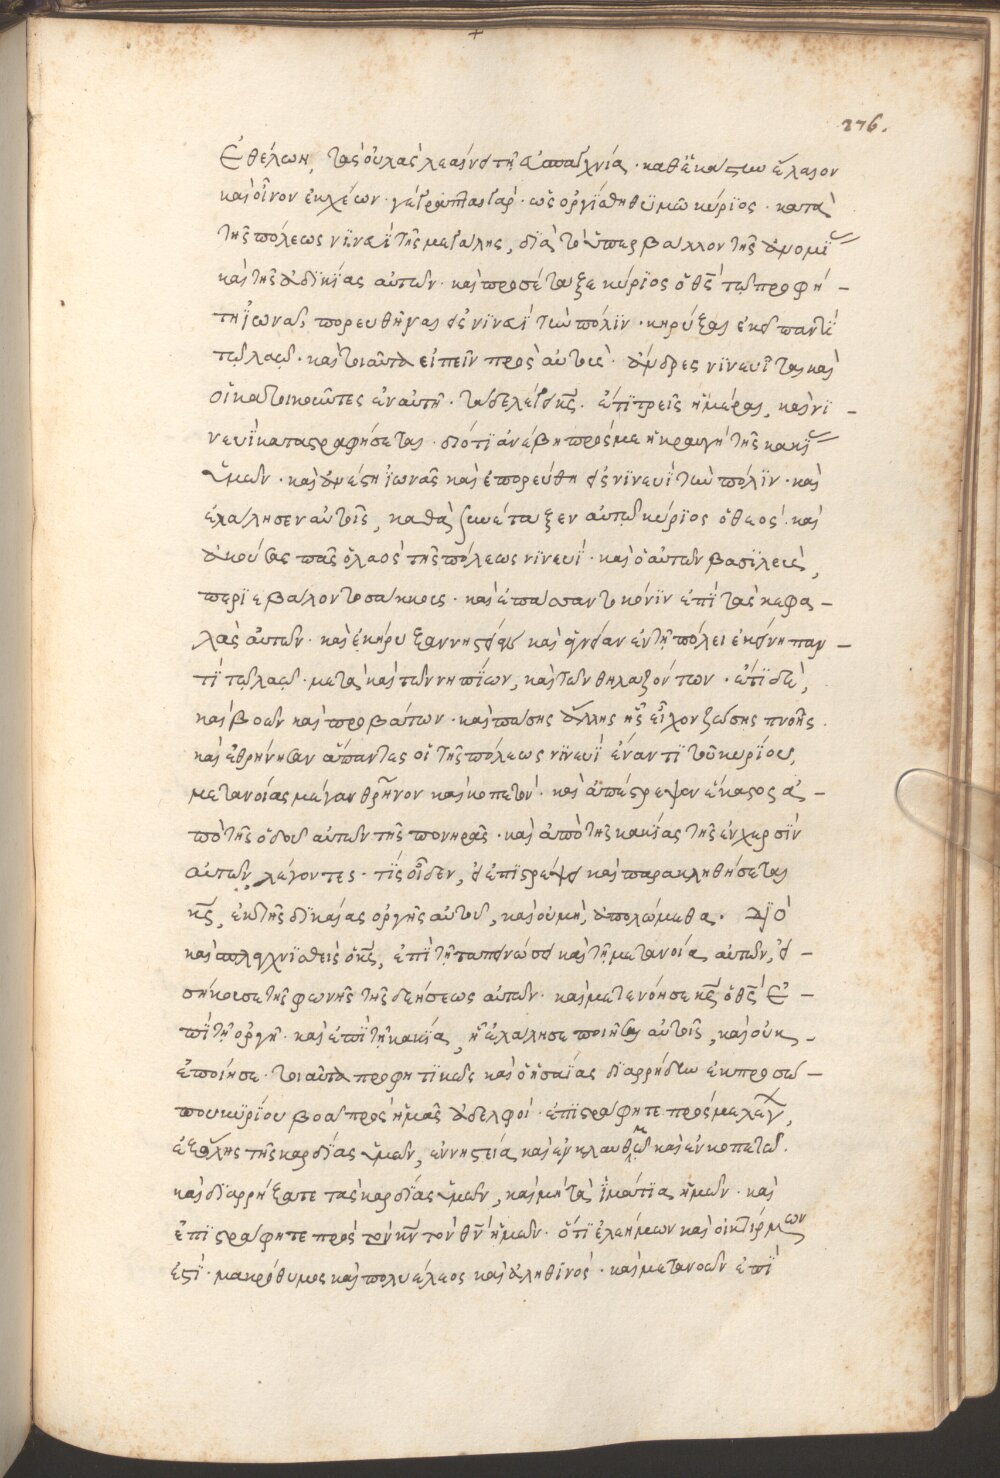 276.
ἐθέλων, τὰς οὐλὰς λεαίνει τῇ εὐσπλαγχνίᾳ · καθ' ἑκάστην ἔλαιον
καὶ οἶνον ἐκχέων · γέγραπται γὰρ · ὡς ὀργίσθη θυμῶ κύριος · κατὰ
τῆς πόλεως νϊνευῒ τῆς μεγάλης, δϊὰ τὸ ὑπερβάλλον τῆς ἀνομί
καὶ τῆς ἀδϊκίας αὐτῶν · καὶ προσέταξε κύρϊος ὁ θς τῷ προφή –
τῃ ϊωνᾶ, πορευθῆναι εἰς νϊνευῒ τὴν πόλϊν · κηρύξαι ἐκεῖ παντὶ
τῷ λαῷ · καὶ τοιαῦτα εἰπεῖν πρὸς αὐτούς · ἄνδρες νϊνευῒται καὶ
οἱ κατοικοῦντες ἐν αὐτῇ · τάδε λέγει κς · ἔτϊ τρεῖς ἡμέραι, καὶ νϊ –
νευῒ καταστραφήσεται · διότϊ ἀνέβη πρός με ἡ κραυγὴ τῆς κακί
ὑμῶν · καὶ ἀνέστη ϊωνᾶς καὶ ἐπορεύθη εἰς νϊνευῒ τὴν πόλϊν · καὶ
ἐλάλησεν αὐτοῖς, καθὰ συνέταξεν αὐτῷ κύρϊος ὁ θεός · καὶ
ἀκούσας πᾶς ὁ λαὸς τῆς πόλεως νϊνευΐ · καὶ ὁ αὐτῶν βασϊλεὺς,
περϊεβάλοντο σάκκους · καὶ ἐπάσαντο κόνϊν ἐπῒ τὰς κεφα –
λὰς αὐτῶν · καὶ ἐκήρυξαν νηστείαν καὶ ἐν τῇ πόλει ἐκείνῃ παν –
τῒ τῷ λαῷ · μετὰ καὶ τῶν νηπίων, καὶ τῶν θηλαζόντων · ἔτϊ δὲ,
καὶ βοῶν καὶ προβάτων · καὶ πάσης ἄλλης ἧς εἶχον ζώσης πνοῆς
καὶ ἐθρήνησαν ἅπαντες οἱ τῆς πόλεως νϊνευῒ ἔναντϊ τοῦ κυρίου,
μετανοίας μέγαν θρῆνον καὶ κοπετόν · καὶ ἀπέστρεψαν ἕκαστος ἀ –
πὸ τῆς ὁδοῦ αὐτῶν τῆς πονηρᾶς · καὶ ἀπὸ τῆς κακίας τῆς ἐν χερσῒν
αὐτῶν, λέγοντες · τίς οἶδεν, εἰ ἐπϊστρέψει καὶ παρακληθήσεται
κς, ἐκ τῆς δϊκαίας ὀργῆς αὐτοῦ, καὶ οὐ μὴ, ἀπολώμεθα · δϊὸ
καὶ σπλαγχνϊσθεὶς ὁ κς, ἐπῒ τῇ ταπεινώσει καὶ τῇ μετανοίᾳ αὐτῶν, εἰ –
σήκουσε τῆς φωνῆς τῆς δεήσεως αὐτῶν · καὶ μετενόησε κς ὁ θς ἐ –
πῒ τῇ ὀργῇ · καὶ ἐπῒ τῇ κακίᾳ, ᾗ ἐλάλησε ποιῆσαι αὐτοῖς, καὶ οὐκ –
ἐποίησε · τοιαῦτα προφητϊκῶς καὶ ὁ ἡσαΐας δϊαρρήδην ἐκ προσώ –
που κυρίου βοᾷ πρὸς ἡμᾶς ἀδελφοί · ἐπϊστράφητε πρός με λέγων,
ἐξ ὅλης τῆς καρδίας ὑμῶν, ἐν νηστείᾳ καὶ ἐν κλαυθμῷ καὶ ἐν κοπετῷ ·
καὶ δϊαρρήξατε τὰς καρδίας ὑμῶν, καὶ μὴ τὰ ἱμάτϊα ἡμῶν · καὶ
ἐπϊστράφητε πρὸς τὸν κν τὸν θν ἡμῶν · ὅτϊ ἐλεήμων καὶ οἰκτίρμων
ἐστῒ · μακρόθυμος καὶ πολυέλεος καὶ ἀληθϊνός · καὶ μετανοῶν ἐπῒ